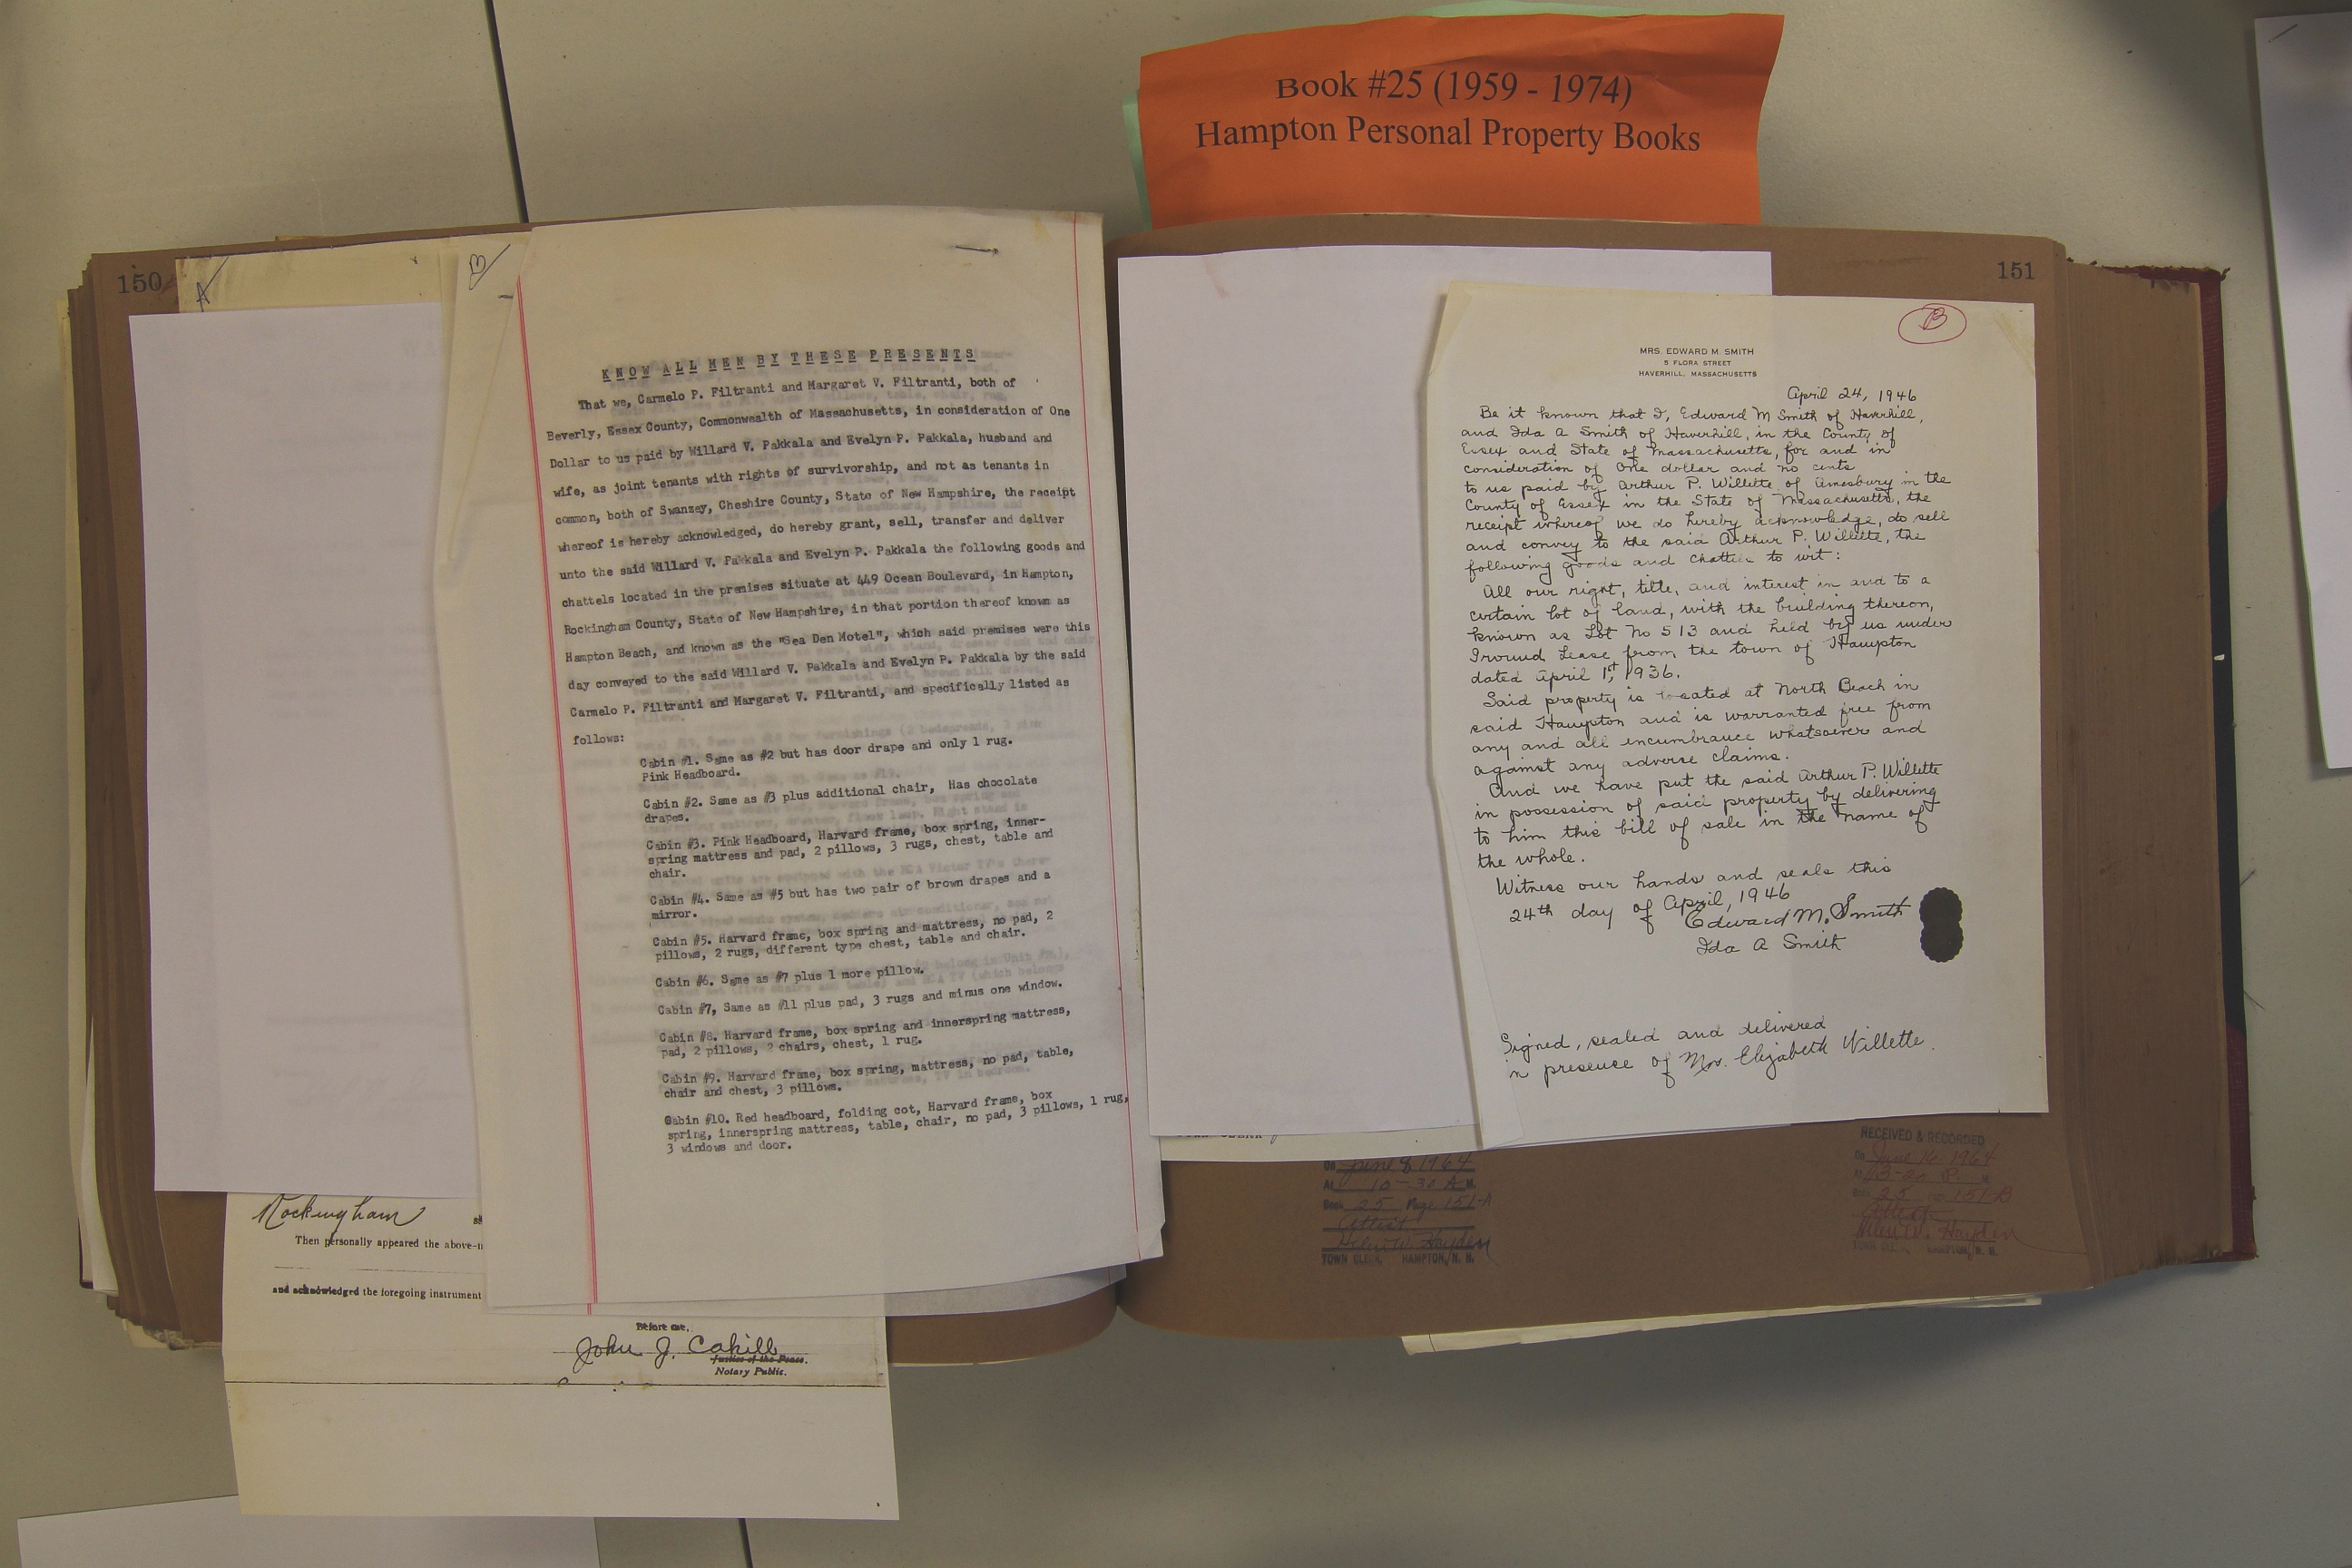 Book #25 (1959 - 1974)
Hampton Personal Property Books
150
A
B
KNOW ALL MEN BY THESE PRESENTS
That we, Carmelo P. Filtranti and Margaret V. Filtranti, both of
Beverly, Essex County, Commonwealth of Massachusetts, in consideration of One
Dollar to us paid by Willard V. Pakkala and Evelyn P. Pakkala, husband and
wife, as joint tenants with rights of survivorship, and not as tenants in
common, both of Swanzey, Cheshire County, State of New Hampshire, the receipt
whereof is hereby acknowledged, do hereby grant, sell, transfer and deliver
unto the said Willard V. Pakkala and Evelyn P. Pakkala the following goods and
chattels located in the premises situate at 449 Ocean Boulevard, in Hampton,
Rockingham County, State of New Hampshire, in that portion thereof known as
Hampton Beach, and known as the "Sea Den Motel", which said premises were this
day conveyed to the said Willard V. Pakkala and Evelyn P. Pakkala by the said
Carmelo P. Filtranti and Margaret V. Filtranti, and specifically listed as
follows:
Cabin #1. Same as #2 but has door drape and only 1 rug.
Pink Headboard.
Cabin #2. Same as #3 plus additional chair, Has chocolate
drapes.
Cabin #3. Pink Headboard, Harvard frame, box spring, inner-
spring mattress and pad, 2 pillows, 3 rugs, chest, table and
chair.
Cabin #4. Same as #5 but has two pair of brown drapes and a
mirror.
Cabin #5. Harvard frame, box spring and mattress, no pad, 2
pillows, 2 rugs, different type chest, table and chair.
Cabin #6. Same as #7 plus 1 more pillow.
Cabin #7, Same as #11 plus pad, 3 rugs and minus one window.
Cabin #8. Harvard frame, box spring and innerspring mattress,
pad, 2 pillows, 2 chairs, chest, 1 rug.
Cabin #9. Harvard frame, box spring, mattress, no pad, table,
chair and chest, 3 pillows.
Cabin #10. Red headboard, folding cot, Harvard frame, box
spring, innerspring mattress, table, chair, no pad, 3 pillows, 1 rug,
3 windows and door.
Rockingham
Then personally appeared the above-n
and acknowledged the foregoing instrument
Before me,
John J. Cahill
Justice of the Peace.
Notary Public.
151
B
MRS. EDWARD M. SMITH
5 FLORA STREET
HAVERHILL, MASSACHUSETTS
April 24, 1946
Be it known that I, Edward M Smith of Haverhill,
and Ida A Smith of Haverhill, in the County of
Essex and State of Massachusetts, for and in
consideration of One dollar and no cents
to us paid by Arthur P. Willette of Amesbury in the
County of Essex in the State of Massachusetts, the
receipt whereof we do hereby acknowledge, do sell
and convey to the said Arthur P. Willette, the
following goods and chattels to wit:
All our right, title, and interest in and to a
certain lot of land, with the building thereon,
known as Lot No 513 and held by us under
Ground Lease from the town of Hampton
dated April 1st, 1936.
Said property is located at North Beach in
said Hampton and is warranted free from
any and all incumbrance whatsoever and
against any adverse claims.
And we have put the said Arthur P. Willette
in possession of said property by delivering
to him this bill of sale in the name of
the whole.
Witness our hands and seals this
24th day of April, 1946
Edward M. Smith
Ida A Smith
Signed, sealed and delivered
in presence of Mrs. Elizabeth Willette.
On June 8 1964
At 10-30 A M.
Book 25 Page 151-A
Attest
Helen W. Hayden
TOWN CLERK, HAMPTON, N. H.
RECEIVED & RECORDED
On June 16 1964
At 3-20 P. M
25 151-B
Attest
Helen W. Hayden
TOWN CLERK, HAMPTON, N. H.